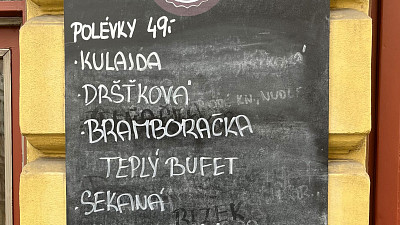 POLÉVKY 49.-
·KULAJDA
·DRŠŤKOVÁ
·BRAMBORAČKA
TEPLÝ BUFET
·SEKANÁ